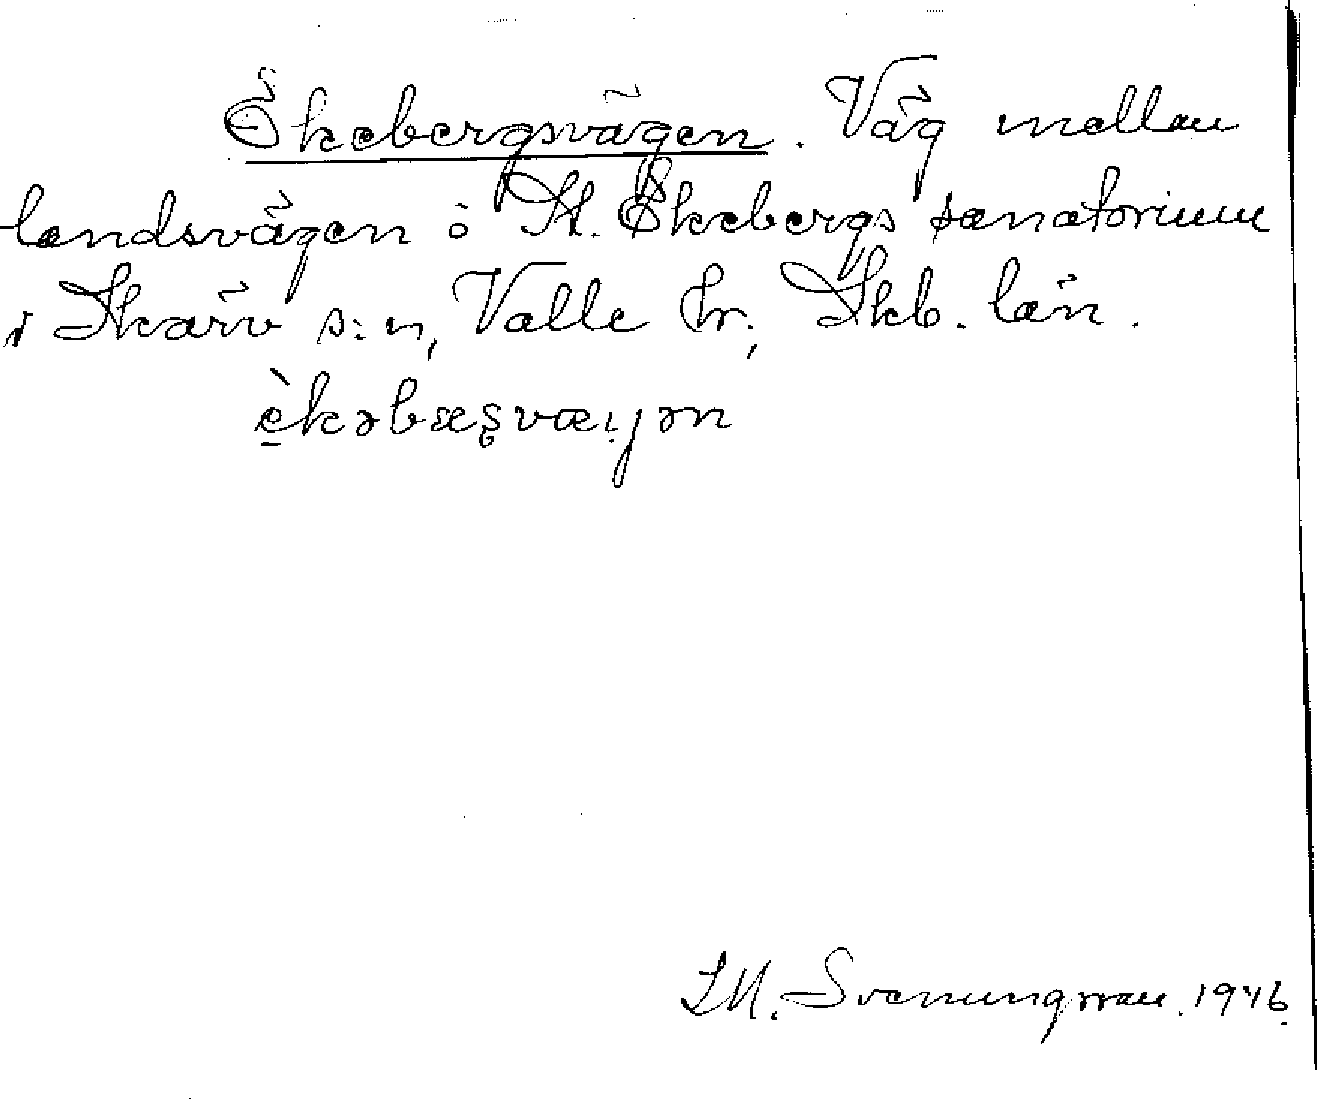 Ekebergsvägen. Väg mellan
landsvägen o St. Ekebergs sanatorium
i Skärv s:n, Valle hr, Skb. län.
S.M. Svenungsson. 1946.